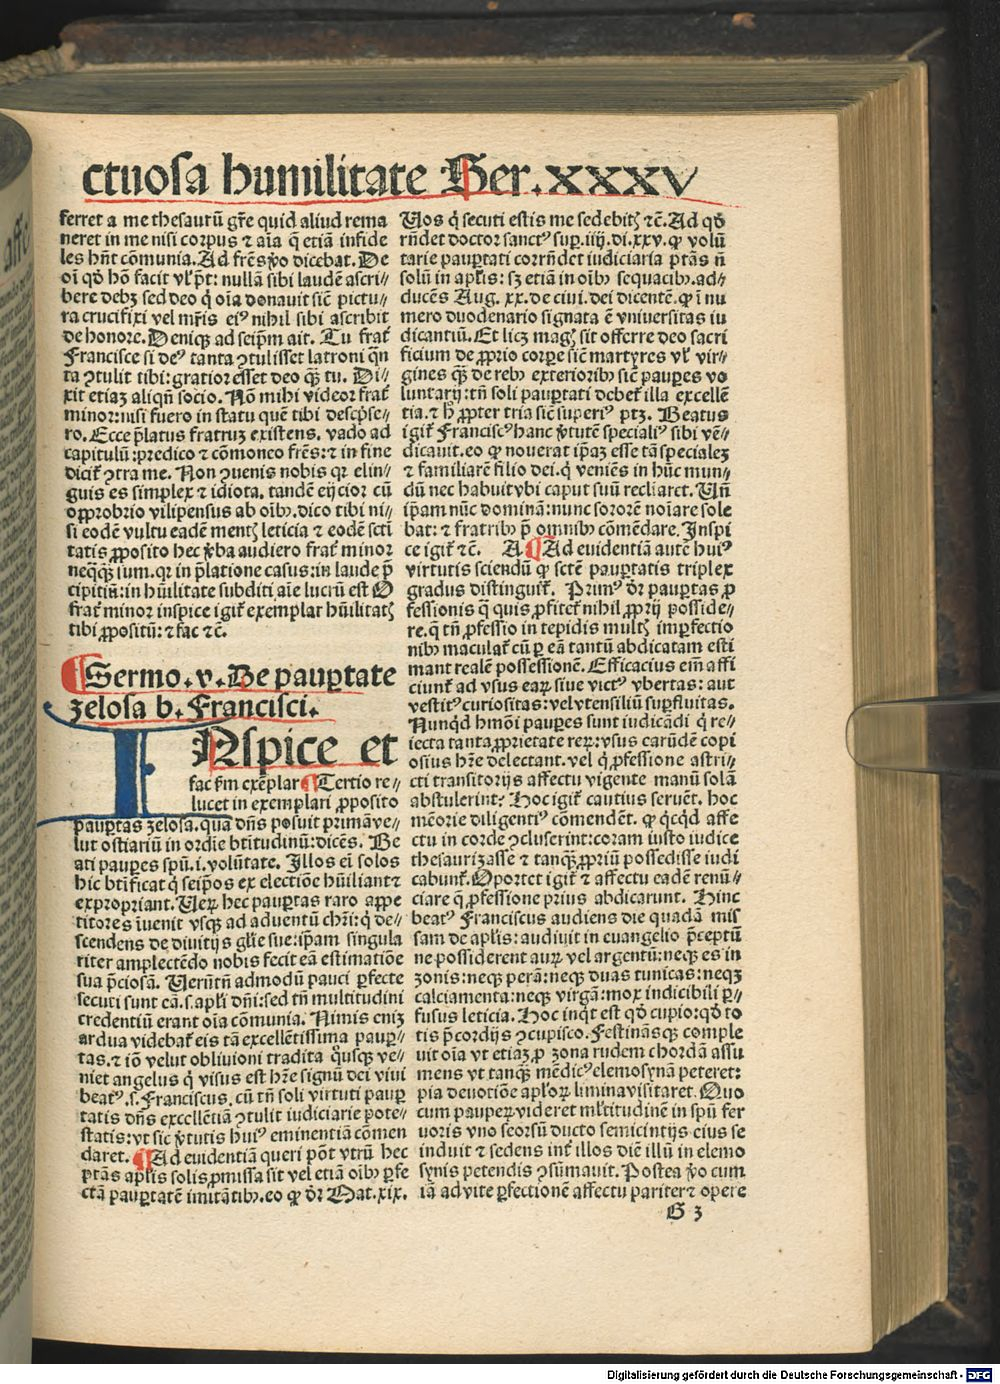 ctuosa humilitate Ser. XXXV
ferret a me thesaurū gr̄e quid aliud rema
neret in me nisi corpus ⁊ aīa q̄ etiā infide
les hn̄t cōmunia. Ad fr̄es ꝟo dicebat. De
oī qd̓ hō facit vl̓ pt̄: nullā sibi laudē ascri⸗
bere debꝫ sed deo q̇ oīa donauit sic̄ pictu⸗
ra crucifixi vel mr̄is eiꝰ nihil sibi ascribit
de honore. Deniqꝫ ad seip̄m ait. Tu frat̄
Francisce si deꝰ tanta ꝯtulisset latroni qn̄
ta ꝯtulit tibi: gratior esset deo qꝫ̄ tu. Di⸗
xit etiaꝫ aliqn̄ socio. Nō mihi videor frat̄
minor: nisi fuero in statu quē tibi descp̓se⸗
ro. Ecce p̄latus fratruꝫ existens. vado ad
capitulū: predico ⁊ cōmoneo fr̄es: ⁊ in fine
dicit̄ ꝯtra me. Non ꝯuenis nobis qꝛ elin⸗
guis es simplex ⁊ idiota. tandē eijcior cū
opprobrio vilipensus ab oībꝫ. dico tibi ni⸗
si eodē vultu eadē mentꝭ leticia ⁊ eodē scti
tatis ꝓposito hec ꝟba audiero frat̄ minor
neqꝫqꝫ̄ sum. qꝛ in p̄latione casus: in laude p̄
cipitiū: in hūilitate subditi aīe lucrū est O
frat̄ minor inspice igit̄ exemplar hūilitatꝭ
tibi ꝓpositū: ⁊ fac ⁊c̄.
¶Sermo. v. De pauꝑtate
zelosa b. Francisci.
INspice et
fac ẜm exēplar ¶Tertio re⸗
lucet in exemplari ꝓposito
pauꝑtas zelosa. quā dn̄s posuit primā ve⸗
lut ostiariū in ordīe btītudinū: dicēs. Be
ati pauꝑes spū. i. volūtate. Illos eī solos
hic btīficat q̇ seip̄os ex electiōe hūiliant ⁊
expropriant. Ueꝝ hec pauꝑtas raro appe
titores īuenit vsqꝫ ad aduentū chr̄i: q̇ de⸗
scendens de diuitijs gl̄ie sue: ip̄am singula
riter amplectēdo nobis fecit eā estimatiōe
sua p̄ciosā. Uerūtn̄ admodū pauci ꝑfecte
secuti sunt eā. s. apl̄i dn̄i: sed tn̄ multitudini
credentiū erant oīa cōmunia. Nimis eniꝫ
ardua videbat̄ eis tā excellētissima pauꝑ⸗
tas. ⁊ iō velut obliuioni tradita q̊usqꝫ ve⸗
niet angelus q̇ visus est hr̄e signū dei viui
beatꝰ. s. Franciscus. cū tn̄ soli virtuti pauꝑ
tatis dn̄s excellētiā ꝯtulit iudiciarie pote⸗
statis: vt sic ꝟtutis huiꝰ eminentiā cōmen
daret. ¶Ad euidentiā queri pōt vtrū hec
ptās apl̄is solis ꝓmissa sit vel etiā oībꝫ ꝑfe
ctā pauꝑtatē imitātibꝫ. eo qꝙ dr̄ Mat. xix.
Uos q̇ secuti estis me sedebitꝭ ⁊c̄. Ad qd̓
rn̄det doctor sanctꝰ suꝑ .iiij. di. xxv. ꝙ volū
tarie pauꝑtati corrn̄det iudiciaria ptās n̄
solū in apl̄is: sꝫ etiā in oībꝫ sequacibꝫ. ad⸗
ducēs Aug. xx. de ciui. dei dicentē. ꝙ ī nu
mero duodenario signata ē vniuersitas iu
dicantiū. Et licꝫ magꝭ sit offerre deo sacri
ficium de ꝓprio corꝑe sic̄ martyres vl̓ vir⸗
gines qꝫ̄ de rebꝫ exterioribꝫ sic̄ pauꝑes vo
luntarij: tn̄ soli pauꝑtati debet̄ illa excellē
tia. ⁊ h̊ ꝓpter tria sic̄ superiꝰ ptꝫ. Beatus
igit̄ Franciscꝰ hanc ꝟtutē specialiꝰ sibi vē⸗
dicauit. eo ꝙ nouerat ip̄aꝫ esse tā specialeꝫ
⁊ familiarē filio dei. q̇ veniēs in hūc mun⸗
dū nec habuit vbi caput suū recliaret. Un̄
ip̄am nūc dominā: nunc sororē noīare sole
bat: ⁊ fratribꝫ p̄ omnibꝫ cōmēdare. Inspi
ce igit̄ ⁊c̄. A ¶Ad euidentiā autē huiꝰ
virtutis sciendū ꝙ sctē pauꝑtatis triplex
gradus distinguit̄. Primꝰ dr̄ pauꝑtas ꝓ
fessionis q̄ quis ꝓfitet̄ nihil ꝓprij posside⸗
re. q̄ tn̄ ꝓfessio in tepidis multꝭ imꝑfectio
nibꝫ maculat̄ cū ꝑ eā tantū abdicatam esti
mant realē possessionē. Efficacius em̄ affi
ciunt̄ ad vsus eaꝝ siue victꝰ vbertas: aut
vestitꝰ curiositas: vel vtensiliū suꝑfluitas.
Nunqd̓ hm̄oi pauꝑes sunt iudicādi q̇ re⸗
iecta tanta ꝓprietate reꝝ: vsus earūdē copi
osius hr̄e delectant. vel q̇ ꝓfessione astri⸗
cti transitorijs affectu vigente manū solā
abstulerint? Hoc igit̄ cautius seruēt. hoc
mēorie diligentiꝰ cōmendēt. ꝙ qc̓qd̓ affe
ctu in corde ꝯcluserint: coram iusto iudice
thesaurizasse ⁊ tanqꝫ̄ ꝓpriū possedisse iudi
cabunt̄. Oportet igit̄ ⁊ affectu eadē renū⸗
ciare q̄ ꝓfessione prius abdicarunt. Hinc
beatꝰ Franciscus audiens die quadā mis
sam de apl̄is: audiuit in euangelio p̄ceptū
ne possiderent auꝝ vel argentū: neqꝫ es in
zonis: neqꝫ perā: neqꝫ duas tunicas: neqꝫ
calciamenta: neqꝫ virgā: mox indicibili ꝑ⸗
fusus leticia. Hoc inqt̓ est qd̓ cupio: qd̓ to
tis p̄cordijs ꝯcupisco. Festināsqꝫ comple
uit oīa vt etiaꝫ ꝓ zona rudem chordā assu
mens vt tanqꝫ̄ mēdicꝰ elemosynā peteret:
pia deuotiōe apl̓oꝝ limina visitaret. Quo
cum pauꝑeꝝ videret ml̓titudinē in spū fer
uoris vno seorsū ducto semicintijs eius se
induit ⁊ sedens int̓ illos diē illū in elemo
synis petendis ꝯsūmauit. Postea ꝟo cum
iā ad vite ꝑfectionē affectu pariter ⁊ opere
G 3
Digitalisierung gefördert durch die Deutsche Forschungsgemeinschaft - DFG